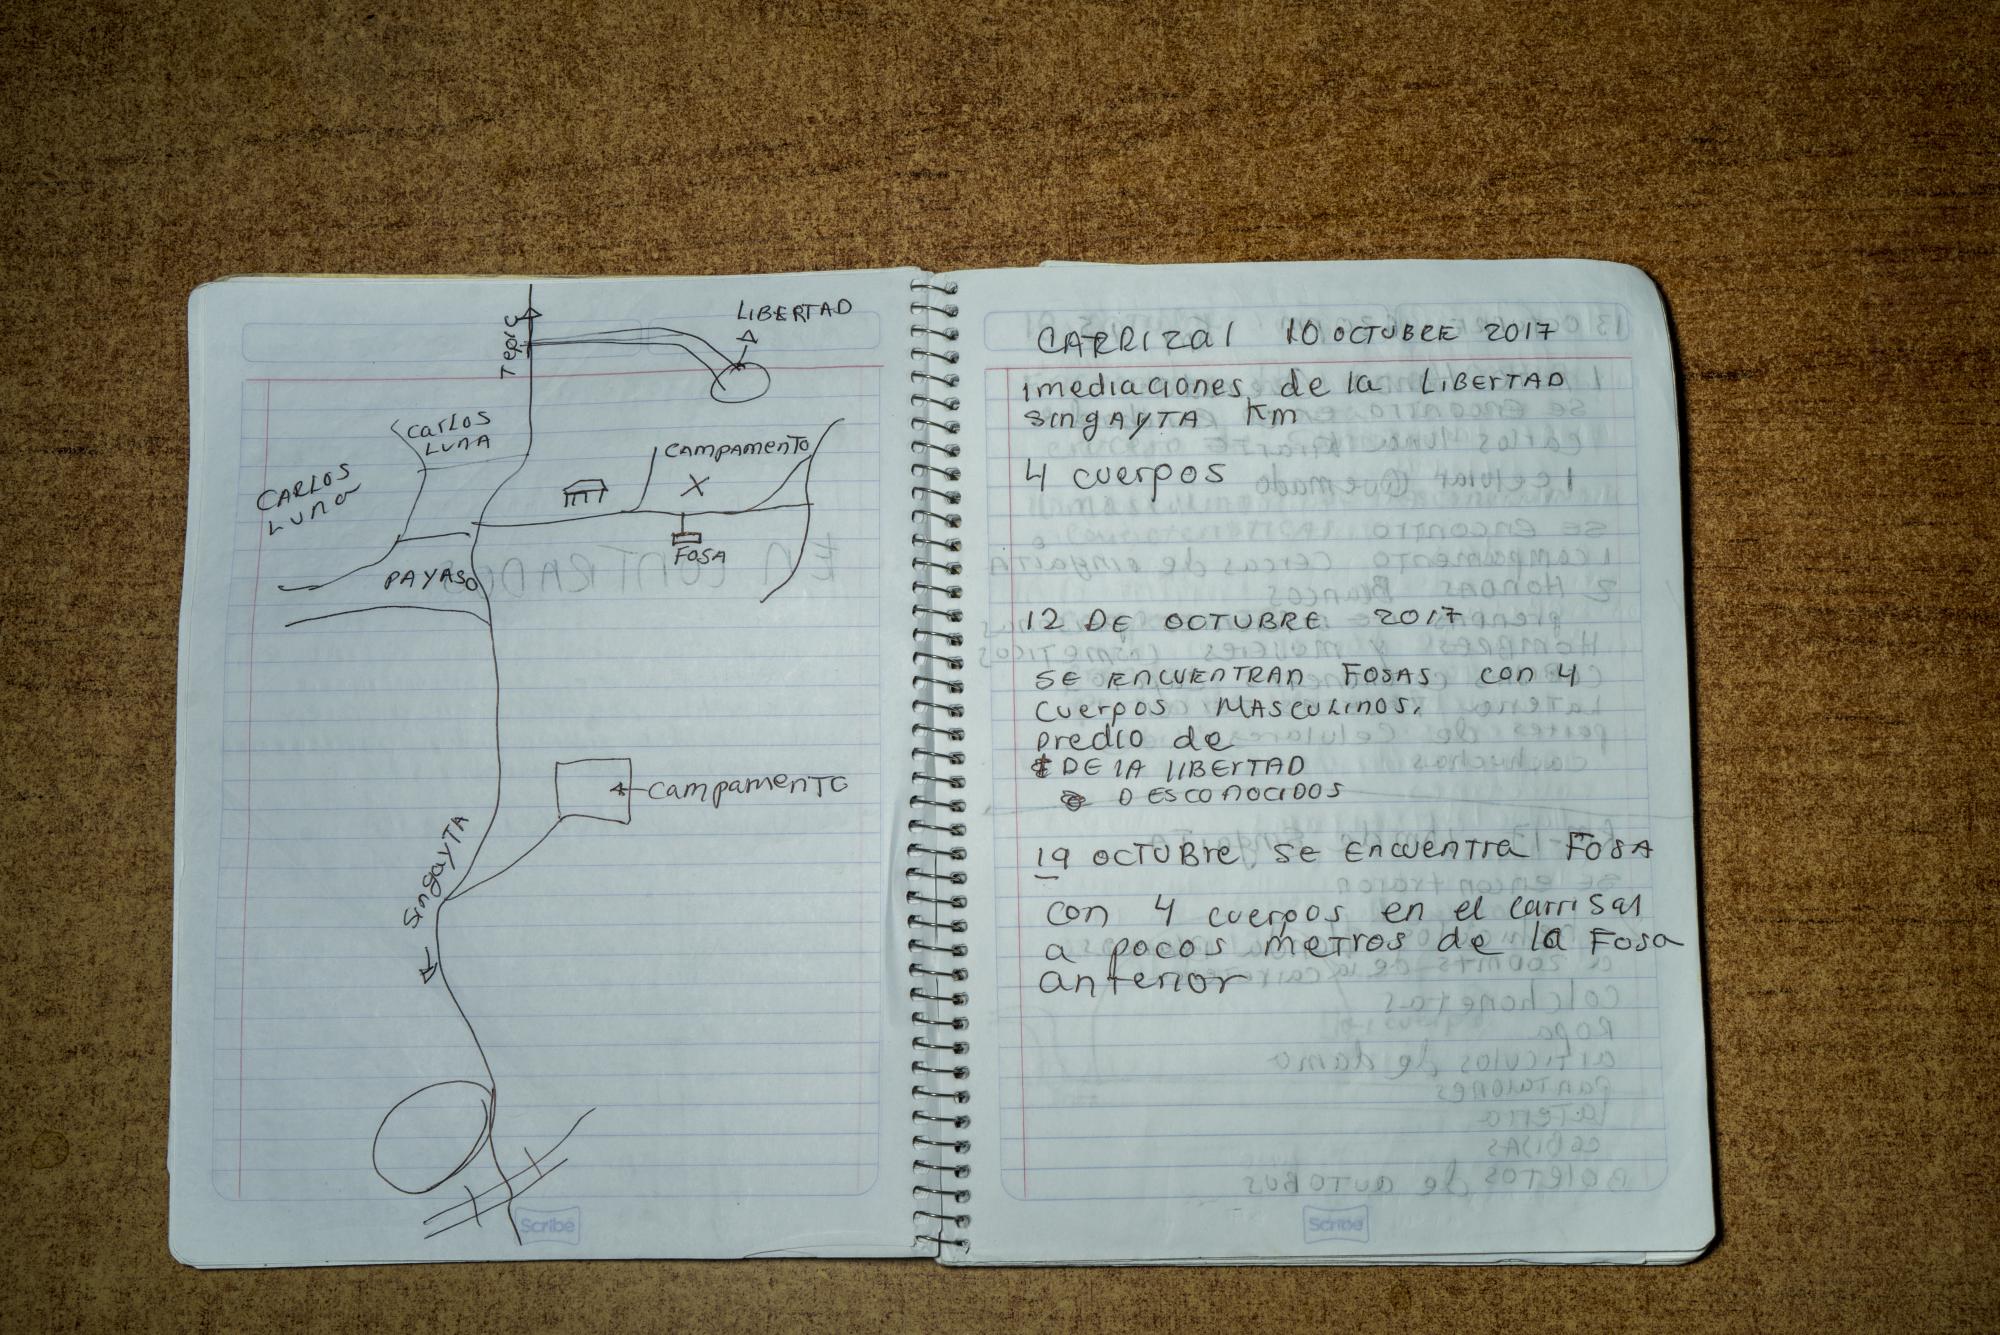 LIBERTAD
Tepic
Carlos
LUNA
CARLOS
LUNA
CAMPAMENTO
FOSA
PAYASO
CAMPAMENTO
SingayTA
Scribe
CARRIzal 10 OCTUBRE 2017
imediaciones de la LiBERTAD
singAyTA Km
4 cuerpos
12 DE OCTUBRE 2017
SE ENCUENTRAN FOSAS con 4
cuerpos MASCULINOS.
predio de
DE lA lIBERTAD
DESCONOCIDOS
19 OCTUBre se EncuenTra FOSA
con 4 cuerpos en el carrisal
a pocos meTros de la Fosa
anterior
Scribe